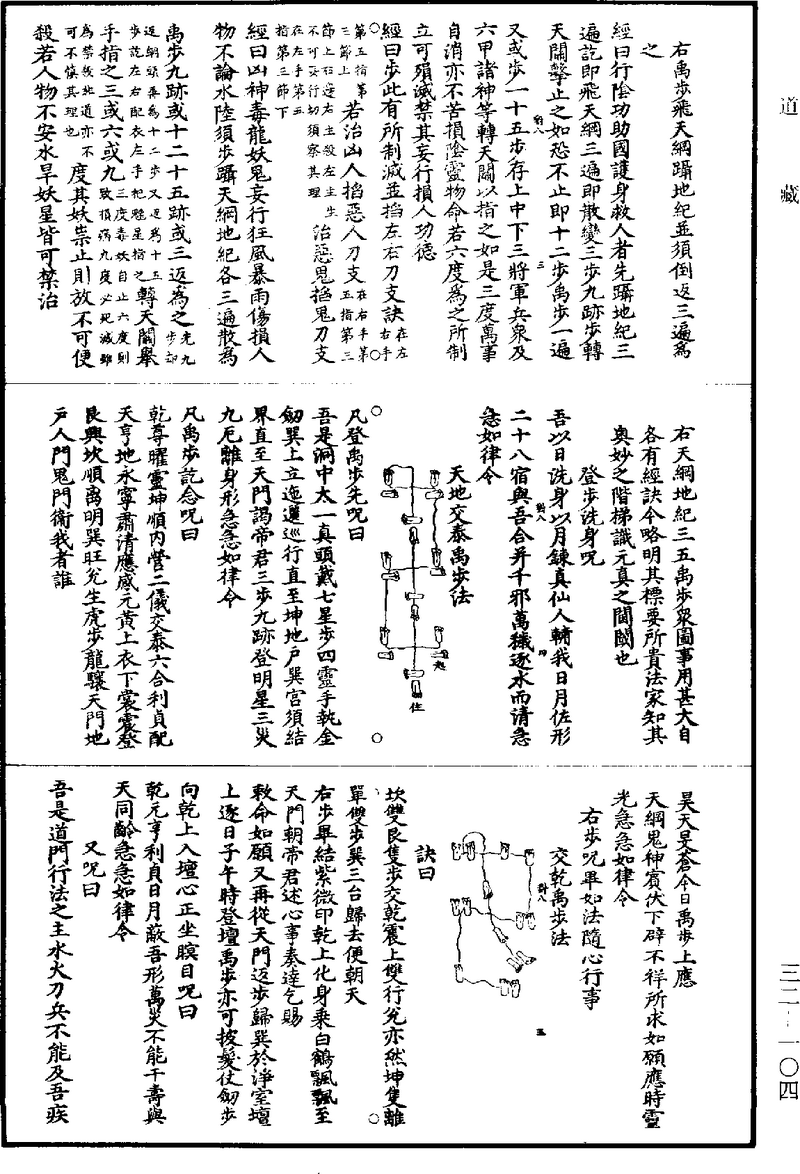 道藏
三二-一〇四
右禹步飛天綱躡地紀並須倒返三遍為
之
經曰行陰功助國護身救人者先躡地紀三
遍訖即飛天綱三遍即散變三步九跡步轉
天關擊止之如恐不止即十二步禹步一遍
又或步一十五步存上中下三將軍兵衆及
六甲諸神等轉天關以指之如是三度萬事
自消亦不苦損陰靈物命若六度為之所制
立可殞滅禁其妄行損人功德
經曰步此有所制滅並掐左右刀支訣在左右手
第五指第三節上若治凶人掐惡人刀支在右手第五指第三
節上右逆左主殺左主生不可妄行切須察其理治惡鬼掐鬼刀支
在左手第五指第三節下
經曰凶神毒龍妖鬼妄行狂風暴雨傷損人
物不論水陸須步躡天綱地紀各三遍散為
禹步九跡或十二十五跡或三返為之先九步却
返網頭英為十二步又返為十五步訖左右配衣左手把魁星指之轉天關舉
手指之三或六或九三度毒妖自止六度則致損病九度必死滅雖
為禁敕此道亦不可不慎其理也度其妖祟止則放不可便
殺若人物不安水旱妖星皆可禁治
右天綱地紀三五禹步衆圖事用甚大自
各有經訣今略明其標要所貴法家知其
奧妙之階梯識元真之閫閾也
登步洗身呪
吾以日洗身以月鍊真仙人輔我日月佐形
二十八宿與吾合并千邪萬穢逐水而清急
急如律令
天地交泰禹步法
起
住
凡登禹步先呪曰
吾是洞中太一真頭戴七星步四靈手執金
劒巽上立迤邐巡行直至坤地戶巽宮須結
界直至天門謁帝君三步九跡登明星三災
九厄離身形急急如律令
凡禹步訖念呪曰
乾尊曜靈坤順內營二儀交泰六合利貞配
天亨地永寧肅清應感元黃上衣下裳震登
艮興坎順离明巽旺兌生虎步龍驤天門地
戶人門鬼門衛我者誰
昊天旻蒼今日禹步上應
天綱鬼神賓伏下辟不祥所求如願應時靈
光急急如律令
右步呪畢如法隨心行事
交乾禹步法
訣曰
坎雙艮隻步交乾震上雙行兌亦然坤隻離
單雙步巽三台歸去便朝天
右步畢結紫微印乾上化身乘白鶴飄飄至
天門朝帝君述心事奏達乞賜
敕命如願又再從天門返步歸巽於淨室壇
上逐日子午時登壇禹步亦可披髮仗劒步
向乾上入壇心正坐瞑目呪曰
乾元亨利貞日月蔽吾形萬災不能干壽與
天同齡急急如律令
又呪曰
吾是道門行法之主水火刀兵不能及吾疾